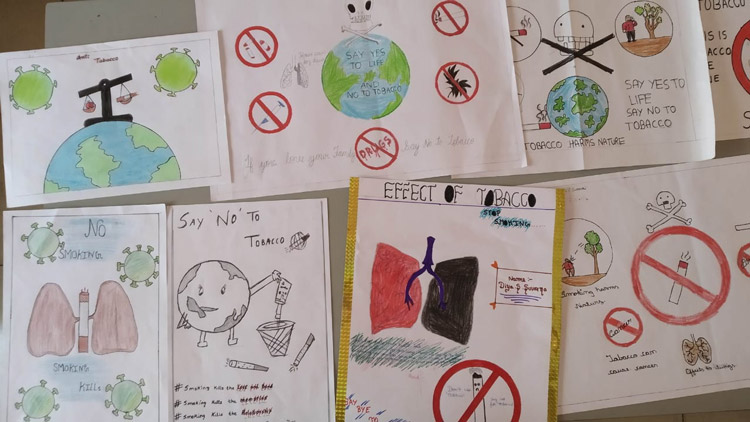 Anti Tobacco
SAY YES
TO LIFE
AND
NO TO TOBACCO
DRUGS
If you love your Say No to Tobacco
SAY YES TO
LIFE
SAY NO TO
TOBACCO
TOBACCO HARMS NATURE
IS IS
TOBACCO
NE
No
SMOKING
SMOKING
Kills
SAY 'NO' To
TOBACCO
# Smoking kills the
# Smoking kills the
# Smoking Kills the
EFFECT OF TOBACCO
STOP
SMOKING
Name :-
SAY
BYE
TOO
Smoking harm
nature
Cancer
Tobacco can
caus cancer
Effects to lungs